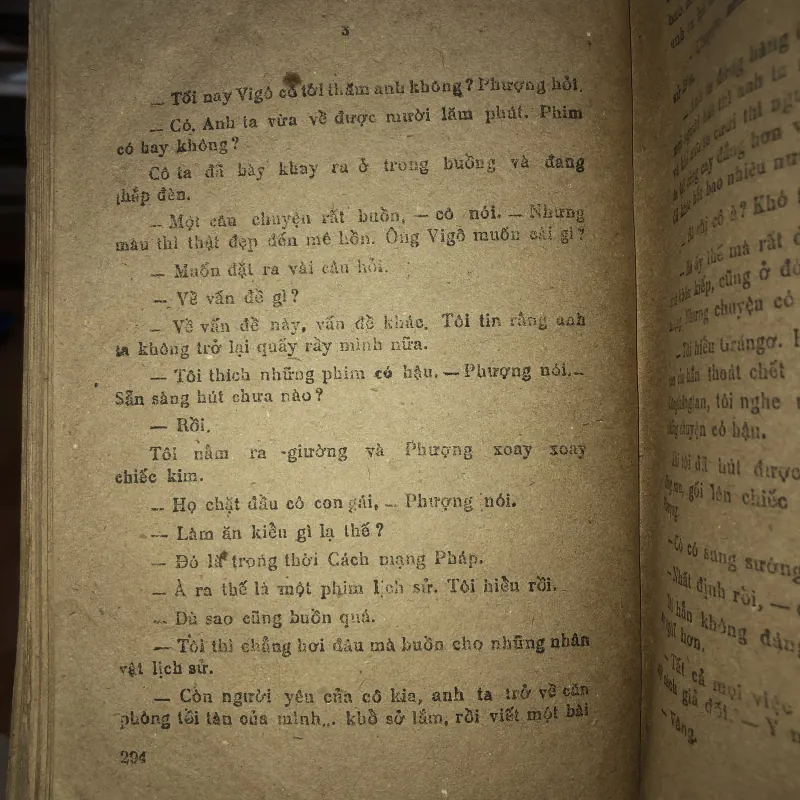 3
— Tối nay Vigô có tới thăm anh không? Phượng hỏi.
— Có. Anh ta vừa về được mười lăm phút. Phim
có hay không?
Cô ta đã bày khay ra ở trong buồng và đang
thắp đèn.
— Một câu chuyện rất buồn, — cô nói. — Nhưng
màu thì thật đẹp đến mê hồn. Ông Vigô muốn cái gì?
— Muốn đặt ra vài câu hỏi.
— Về vấn đề gì?
— Về vấn đề này, vấn đề khác. Tôi tin rằng anh
ta không trở lại quấy rầy mình nữa.
— Tôi thích những phim có hậu. — Phượng nói. —
Sẵn sàng hút chưa nào?
— Rồi.
Tôi nằm ra giường và Phượng xoay xoay
chiếc kim.
— Họ chặt đầu cô con gái, — Phượng nói.
— Làm ăn kiểu gì lạ thế?
— Đó là trong thời Cách mạng Pháp.
— À ra thế là một phim lịch sử. Tôi hiểu rồi.
— Dù sao cũng buồn quá.
— Tôi thì chẳng hơi đâu mà buồn cho những nhân
vật lịch sử.
— Còn người yêu của cô kia, anh ta trở về căn
phòng tồi tàn của mình... khổ sở lắm, rồi viết một bài
294
bao nhiêu
cô à? Khó
thế mà rất
kiếp, cũng ở
Nhưng chuyện có
— Tôi hiểu Grăngơ.
thoát chết
gian, tôi nghe
chuyện có hậu.
tôi đã hút được
gối lên chiếc
— Cô có sung sướng
— Nhất định rồi, —
hẳn không đáng
hơn.
— Tất cả mọi việc
giả dối. — Ý
— Vâng.